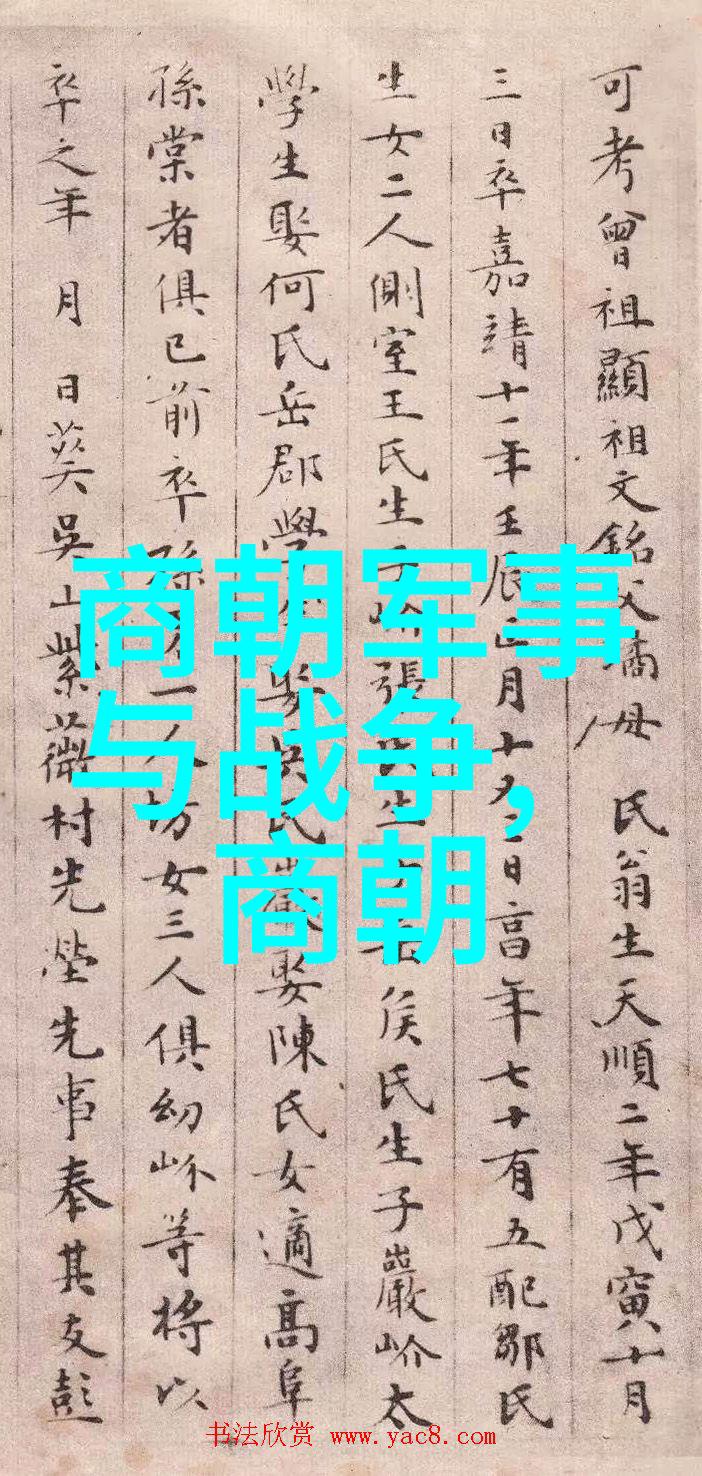 可考曾祖顯祖文銘父母 氏翁生天順二年戊寅十月
三日卒嘉靖十一年壬辰正月十又二日享年七十有五配鄒氏
生女二人側室王氏生子岎張氏生侯氏生子巖岎太
學生娶何氏岳郡學生娶氏巖娶陳氏女適高阜
孫棠者俱已前卒孫一人坊女三人俱幼岎等將以
卒之年 月 日葬吳山紫薇村先塋先事奉其友彭
商朝军事
与战争,
商朝
书法欣赏 www.yac8.com